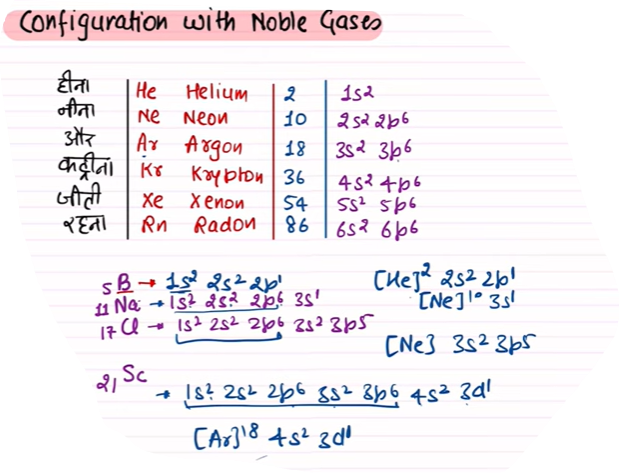 Configuration with Noble Gases
हीना He Helium 2 1s2
नीना Ne Neon 10 2s2 2p6
और Ar Argon 18 3s2 3p6
कट्रीना Kr Krypton 36 4s2 4p6
जीती Xe Xenon 54 5s2 5p6
रहना Rn Radon 86 6s2 6p6
5 B → 1s2 2s2 2p1 [He]2 2s2 2p1
11 Na → 1s2 2s2 2p6 3s1 [Ne]10 3s1
17 Cl → 1s2 2s2 2p6 3s2 3p5
[Ne] 3s2 3p5
21 Sc → 1s2 2s2 2p6 3s2 3p6 4s2 3d1
[Ar]18 4s2 3d1